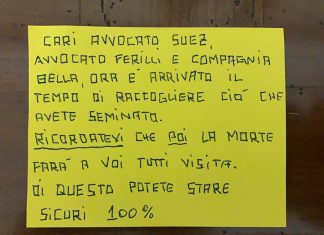 CARI AVVOCATO SUEZ,
AVVOCATO FERILLI E COMPAGNIA
BELLA, ORA È ARRIVATO IL
TEMPO DI RACCOGLIERE CIÓ CHE
AVETE SEMINATO.
RICORDATEVI CHE POI LA MORTE
FARÁ A VOI TUTTI VISITA.
DI QUESTO POTETE STARE
SICURI 100%